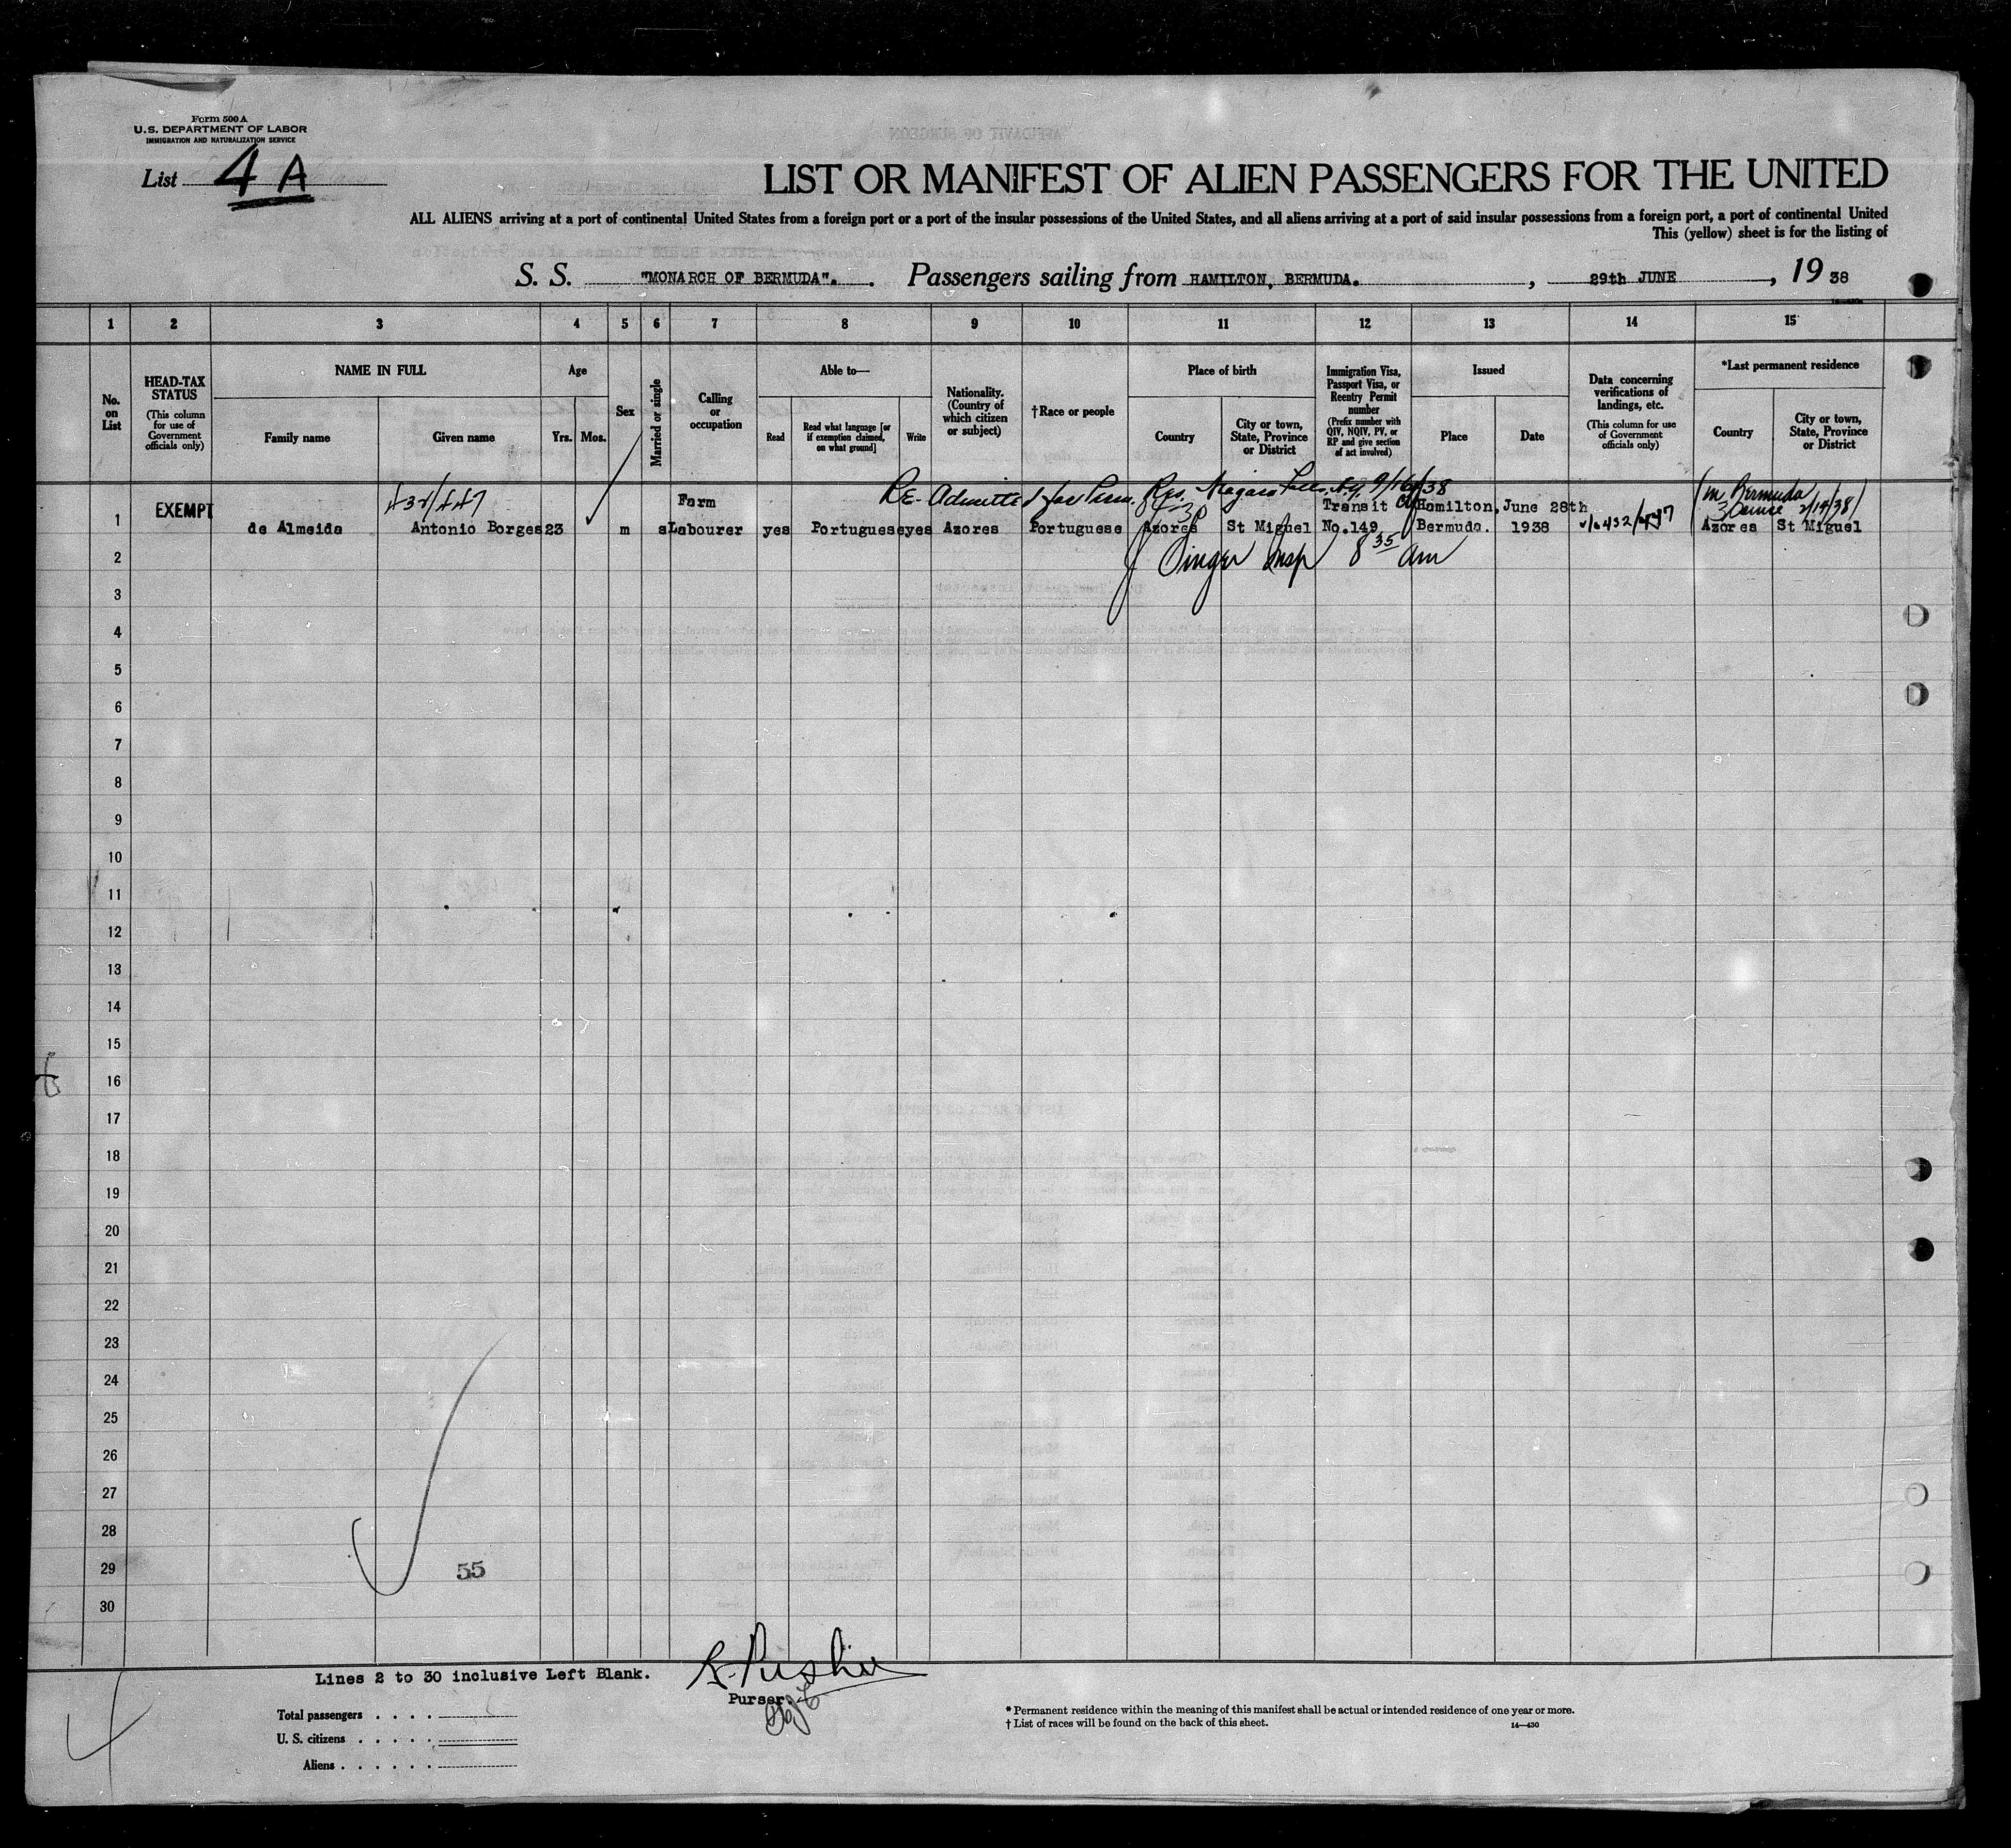 Form 500 A
U.S. DEPARTMENT OF LABOR
IMMIGRATION AND NATURALIZATION SERVICE
List 4 A
LIST OR MANIFEST OF ALIEN PASSENGERS FOR THE UNITED
ALL ALIENS arriving at a port of continental United States from a foreign port or a port of the insular possessions of the United States, and all aliens arriving at a port of said insular possessions from a foreign port, a port of continental United
This (yellow) sheet is for the listing of
S. S. "MONARCH OF BERMUDA". Passengers sailing from HAMILTON, BERMUDA. , 29th JUNE , 19 38
1 2 3 4 5 6 7 8 9 10 11 12 13 14 15
No. on List
HEAD-TAX STATUS
(This column for use of Government officials only)
NAME IN FULL
Family name
Given name
Age
Yrs.
Mos.
Sex
Married or single
Calling or occupation
Able to—
Read
Read what language [or if exemption claimed, on what ground]
Write
Nationality. (Country of which citizen or subject)
†Race or people
Place of birth
Country
City or town, State, Province or District
Immigration Visa, Passport Visa, or Reentry Permit number
(Prefix number with QIV, NQIV, PV, or RP and give section of act involved)
Issued
Place
Date
Data concerning verifications of landings, etc.
(This column for use of Government officials only)
*Last permanent residence
Country
City or town, State, Province or District
432/447
Re-Admitted for Perm. Res. Niagara Falls, N.Y. 9/16/38
(in Bermuda
EXEMPT Farm Transit Hamilton, June 28th
1 de Almeida Antonio Borges 23 m s Labourer yes Portuguese yes Azores Portuguese Azores St Miguel No.149 Bermuda. 1938 432/447 Azores St Miguel
2 Insp 8 35 am
3
4
5
6
7
8
9
10
11
12
13
14
15
16
17
18
19
20
21
22
23
24
25
26
27
28
29 55
30
Lines 2 to 30 inclusive Left Blank.
Purser.
Total passengers . . . .
U. S. citizens . . . . .
Aliens . . . . . .
* Permanent residence within the meaning of this manifest shall be actual or intended residence of one year or more.
† List of races will be found on the back of this sheet.
14—430